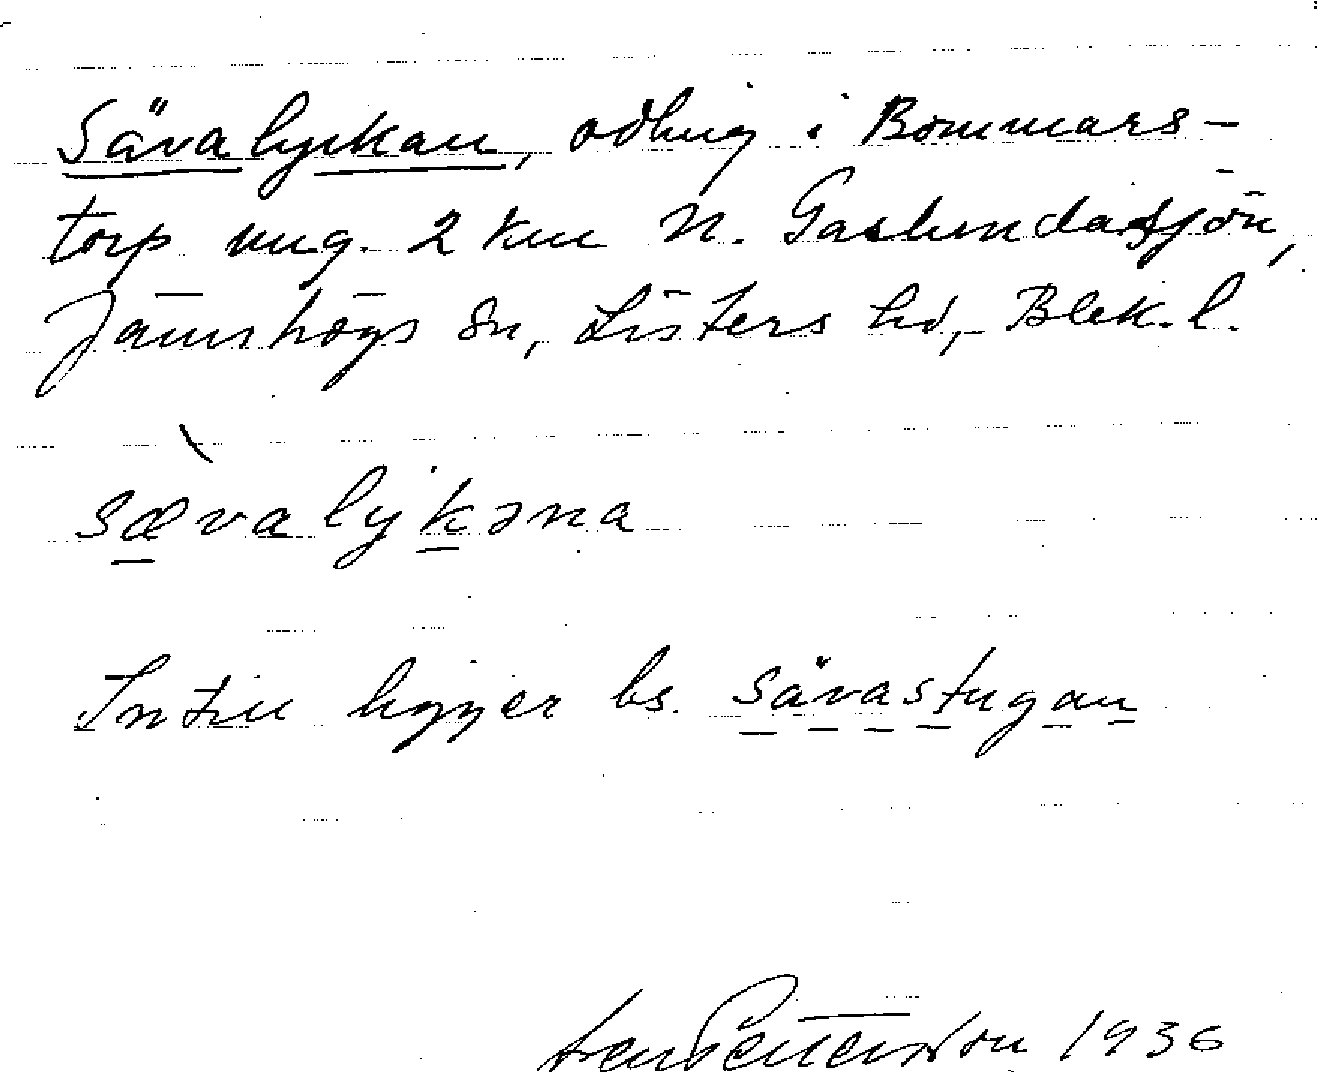 Sävalyckan, odling i Bommars-
torp ung. 2 km N. Gaslundasjön,
Jämshögs sn, Listers hd, Blek. l.
sævalykəna
Intill ligger bs. Sävastugan
Pettersson 1936